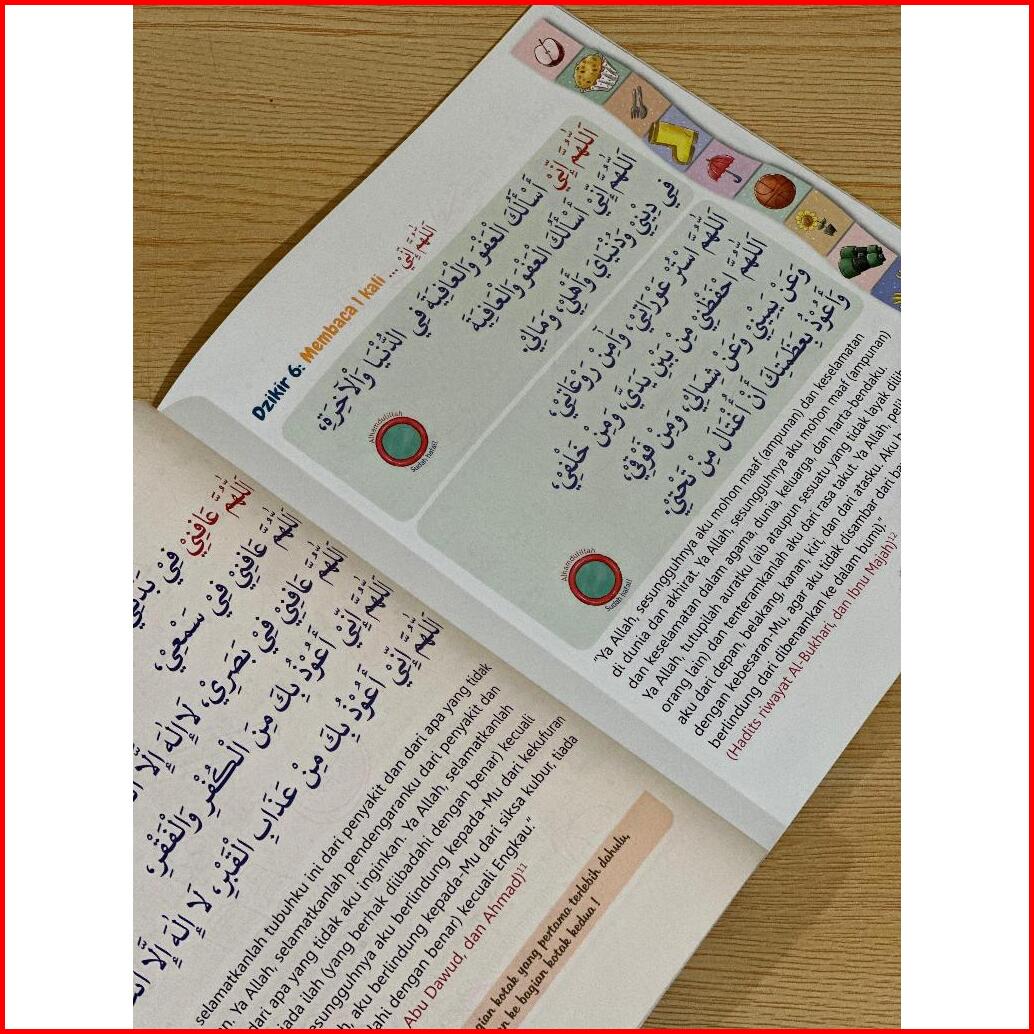 اَللّٰهُمَّ عَافِنِيْ فِيْ
اَللّٰهُمَّ عَافِنِيْ فِيْ سَمْعِيْ،
اَللّٰهُمَّ عَافِنِيْ فِيْ بَصَرِيْ، لَا إِلٰهَ إِلَّا
اَللّٰهُمَّ إِنِّيْ أَعُوْذُ بِكَ مِنَ الْكُفْرِ وَالْفَقْرِ،
اَللّٰهُمَّ إِنِّيْ أَعُوْذُ بِكَ مِنْ عَذَابِ الْقَبْرِ، لَا إِلٰهَ إِلَّا
selamatkanlah tubuhku ini dari penyakit dan dari apa yang tidak
n. Ya Allah, selamatkanlah pendengaranku dari penyakit dan
dari apa yang tidak aku inginkan. Ya Allah, selamatkanlah
iada ilah (yang berhak diibadahi dengan benar) kecuali
esungguhnya aku berlindung kepada-Mu dari kekufuran
h, aku berlindung kepada-Mu dari siksa kubur, tiada
ahi dengan benar) kecuali Engkau."
Abu Dawud, dan Ahmad)¹¹
gian kotak yang pertama terlebih dahulu,
n ke bagian kotak kedua !
Dzikir 6: Membaca 1 kali ... اَللّٰهُمَّ إِنِّيْ
اَللّٰهُمَّ إِنِّيْ أَسْأَلُكَ الْعَفْوَ وَالْعَافِيَةَ فِي الدُّنْيَا وَالْآخِرَةِ،
اَللّٰهُمَّ إِنِّيْ أَسْأَلُكَ الْعَفْوَ وَالْعَافِيَةَ
فِي دِيْنِيْ وَدُنْيَايَ وَأَهْلِيْ وَمَالِيْ،
Alhamdulillah
Sudah hafal!
اَللّٰهُمَّ اسْتُرْ عَوْرَاتِيْ، وَآمِنْ رَوْعَاتِيْ،
اَللّٰهُمَّ احْفَظْنِيْ مِنْ بَيْنِ يَدَيَّ، وَمِنْ خَلْفِيْ،
وَعَنْ يَمِيْنِيْ وَعَنْ شِمَالِيْ، وَمِنْ فَوْقِيْ،
وَأَعُوْذُ بِعَظَمَتِكَ أَنْ أُغْتَالَ مِنْ تَحْتِيْ.
Alhamdulillah
Sudah hafal!
"Ya Allah, sesungguhnya aku mohon maaf (ampunan) dan keselamatan
di dunia dan akhirat. Ya Allah, sesungguhnya aku mohon maaf (ampunan)
dan keselamatan dalam agama, dunia, keluarga, dan harta-bendaku.
Ya Allah, tutupilah auratku (aib ataupun sesuatu yang tidak layak dilih
orang lain) dan tenteramkanlah aku dari rasa takut. Ya Allah, peli
aku dari depan, belakang, kanan, kiri, dan dari atasku. Aku b
dengan kebesaran-Mu, agar aku tidak disambar dari ba
berlindung dari dibenamkan ke dalam bumi)."
(Hadits riwayat Al-Bukhari, dan Ibnu Majah)¹²